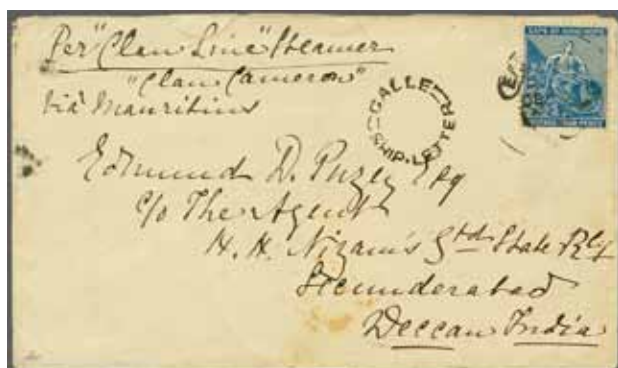 Per "Clan Line" Steamer
"Clan Cameron"
Via Mauritius
GALLE
SHIP-LETTER
CAPE OF GOOD HOPE
Edmund D. Puzey Esq
c/o The Agent
H. H. Nizam's Gtd State Rly
Secunderabad
Deccan India